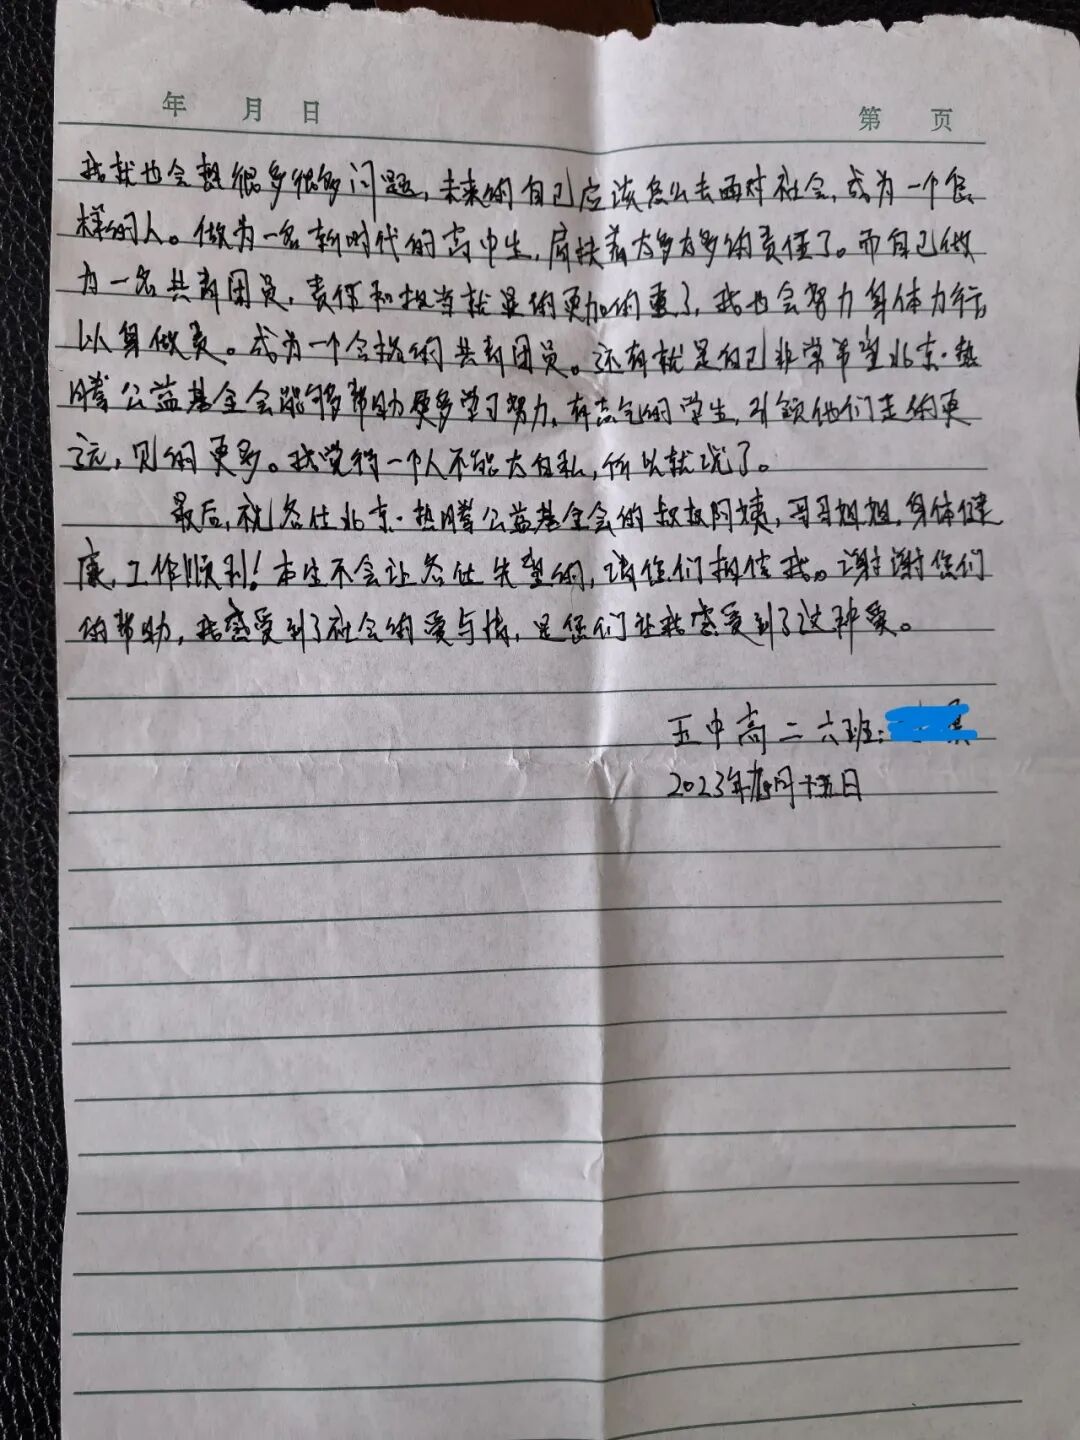 年 月 日 第 页
我就也会想很多很多问题，未来的自己应该怎么去面对社会，成为一个怎
样的人。做为一名新时代的高中生，肩扶着太多太多的责任了。而自己做
为一名共青团员，责任和担当就显的更加的重了，我也会努力身体力行，
以身做责。成为一个合格的共青团员。还有就是自己非常希望北京·热
腾公益基金会能够帮助更多学习努力，有志气的学生，引领他们走的更
远，见的更多。我觉得一个人不能太自私，所以就说了。
最后，祝各位北京·热腾公益基金会的叔叔阿姨，哥哥姐姐，身体健
康，工作顺利！本生不会让各位失望的，请您们相信我。谢谢您们
的帮助，我感受到了社会的爱与情，是您们让我感受到了这种爱。
五中高二六班：
2023年 月十五日